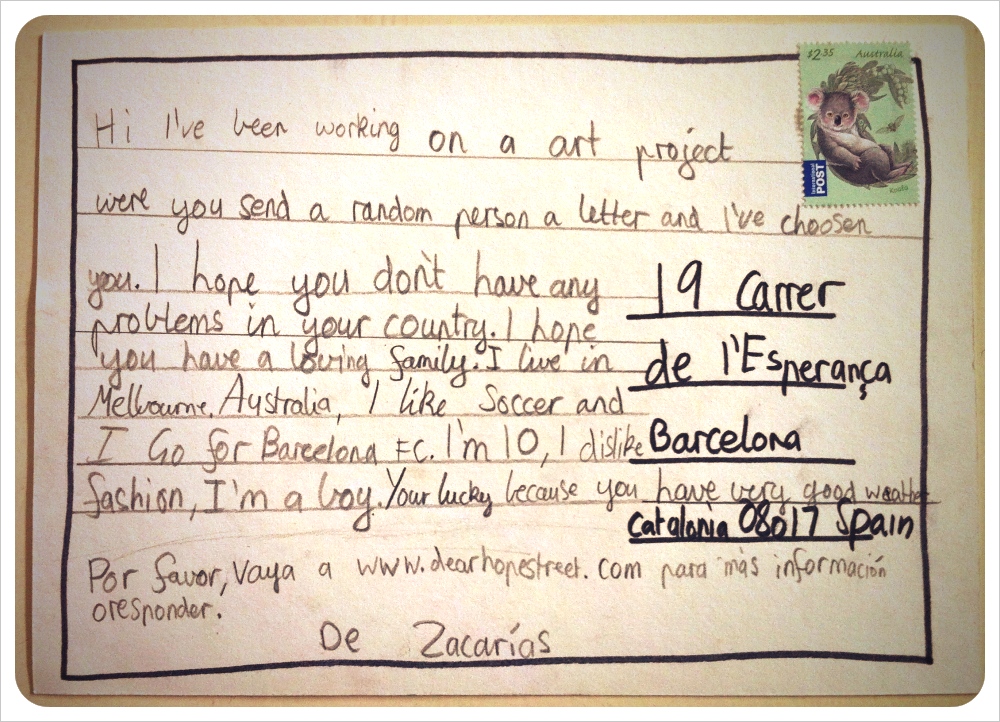 $2.35 Australia
International POST
Koala
Hi I've been working on a art project
were you send a random person a letter and I've choosen
you. I hope you don't have any
problems in your country. I hope
you have a loving family. I live in
Melbourne, Australia, I like Soccer and
I Go for Barcelona FC. I'm 10, I dislike
fashion, I'm a boy. Your lucky because you have very good weather
19 Carrer
de l'Esperança
Barcelona
Catalonia 08017 Spain
Por favor, vaya a www.dearhopestreet.com para más información
oresponder.
De Zacarías